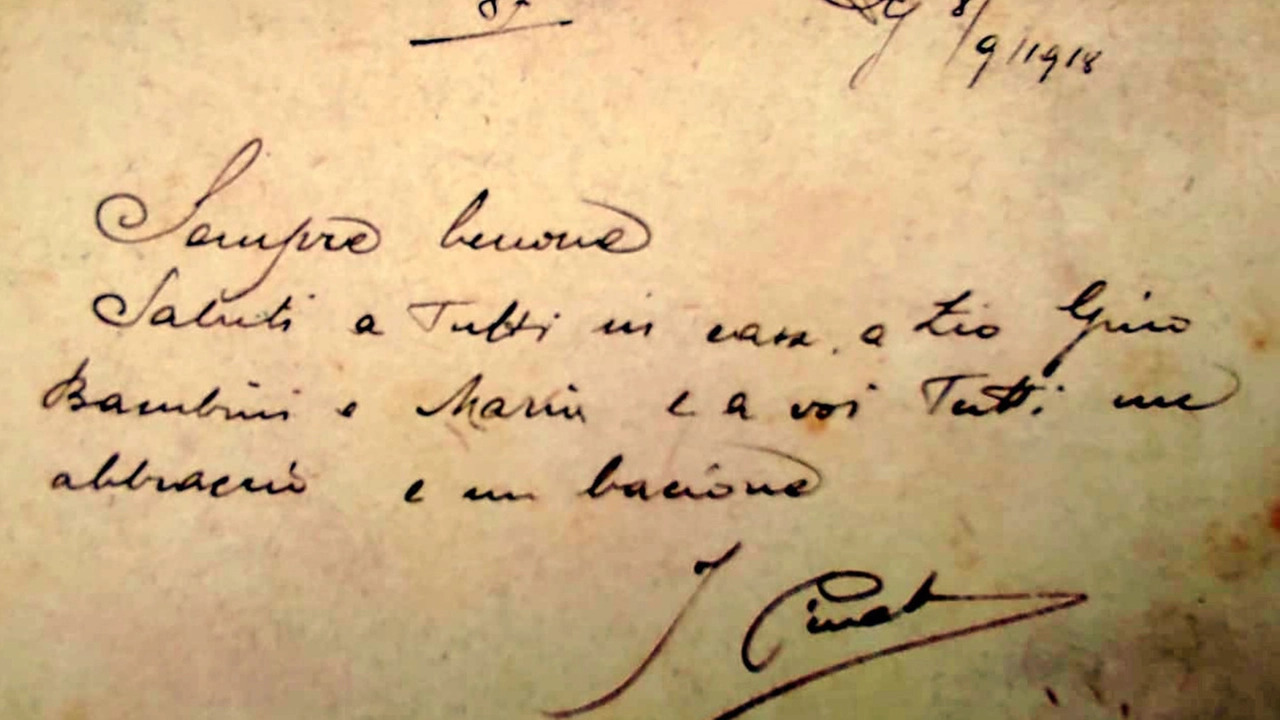 87
8/9/1918
Sempre benone
Saluti a Tutti in casa, a Zio Gino
Bambini e Maria e a voi Tutti un
abbraccio e un bacione